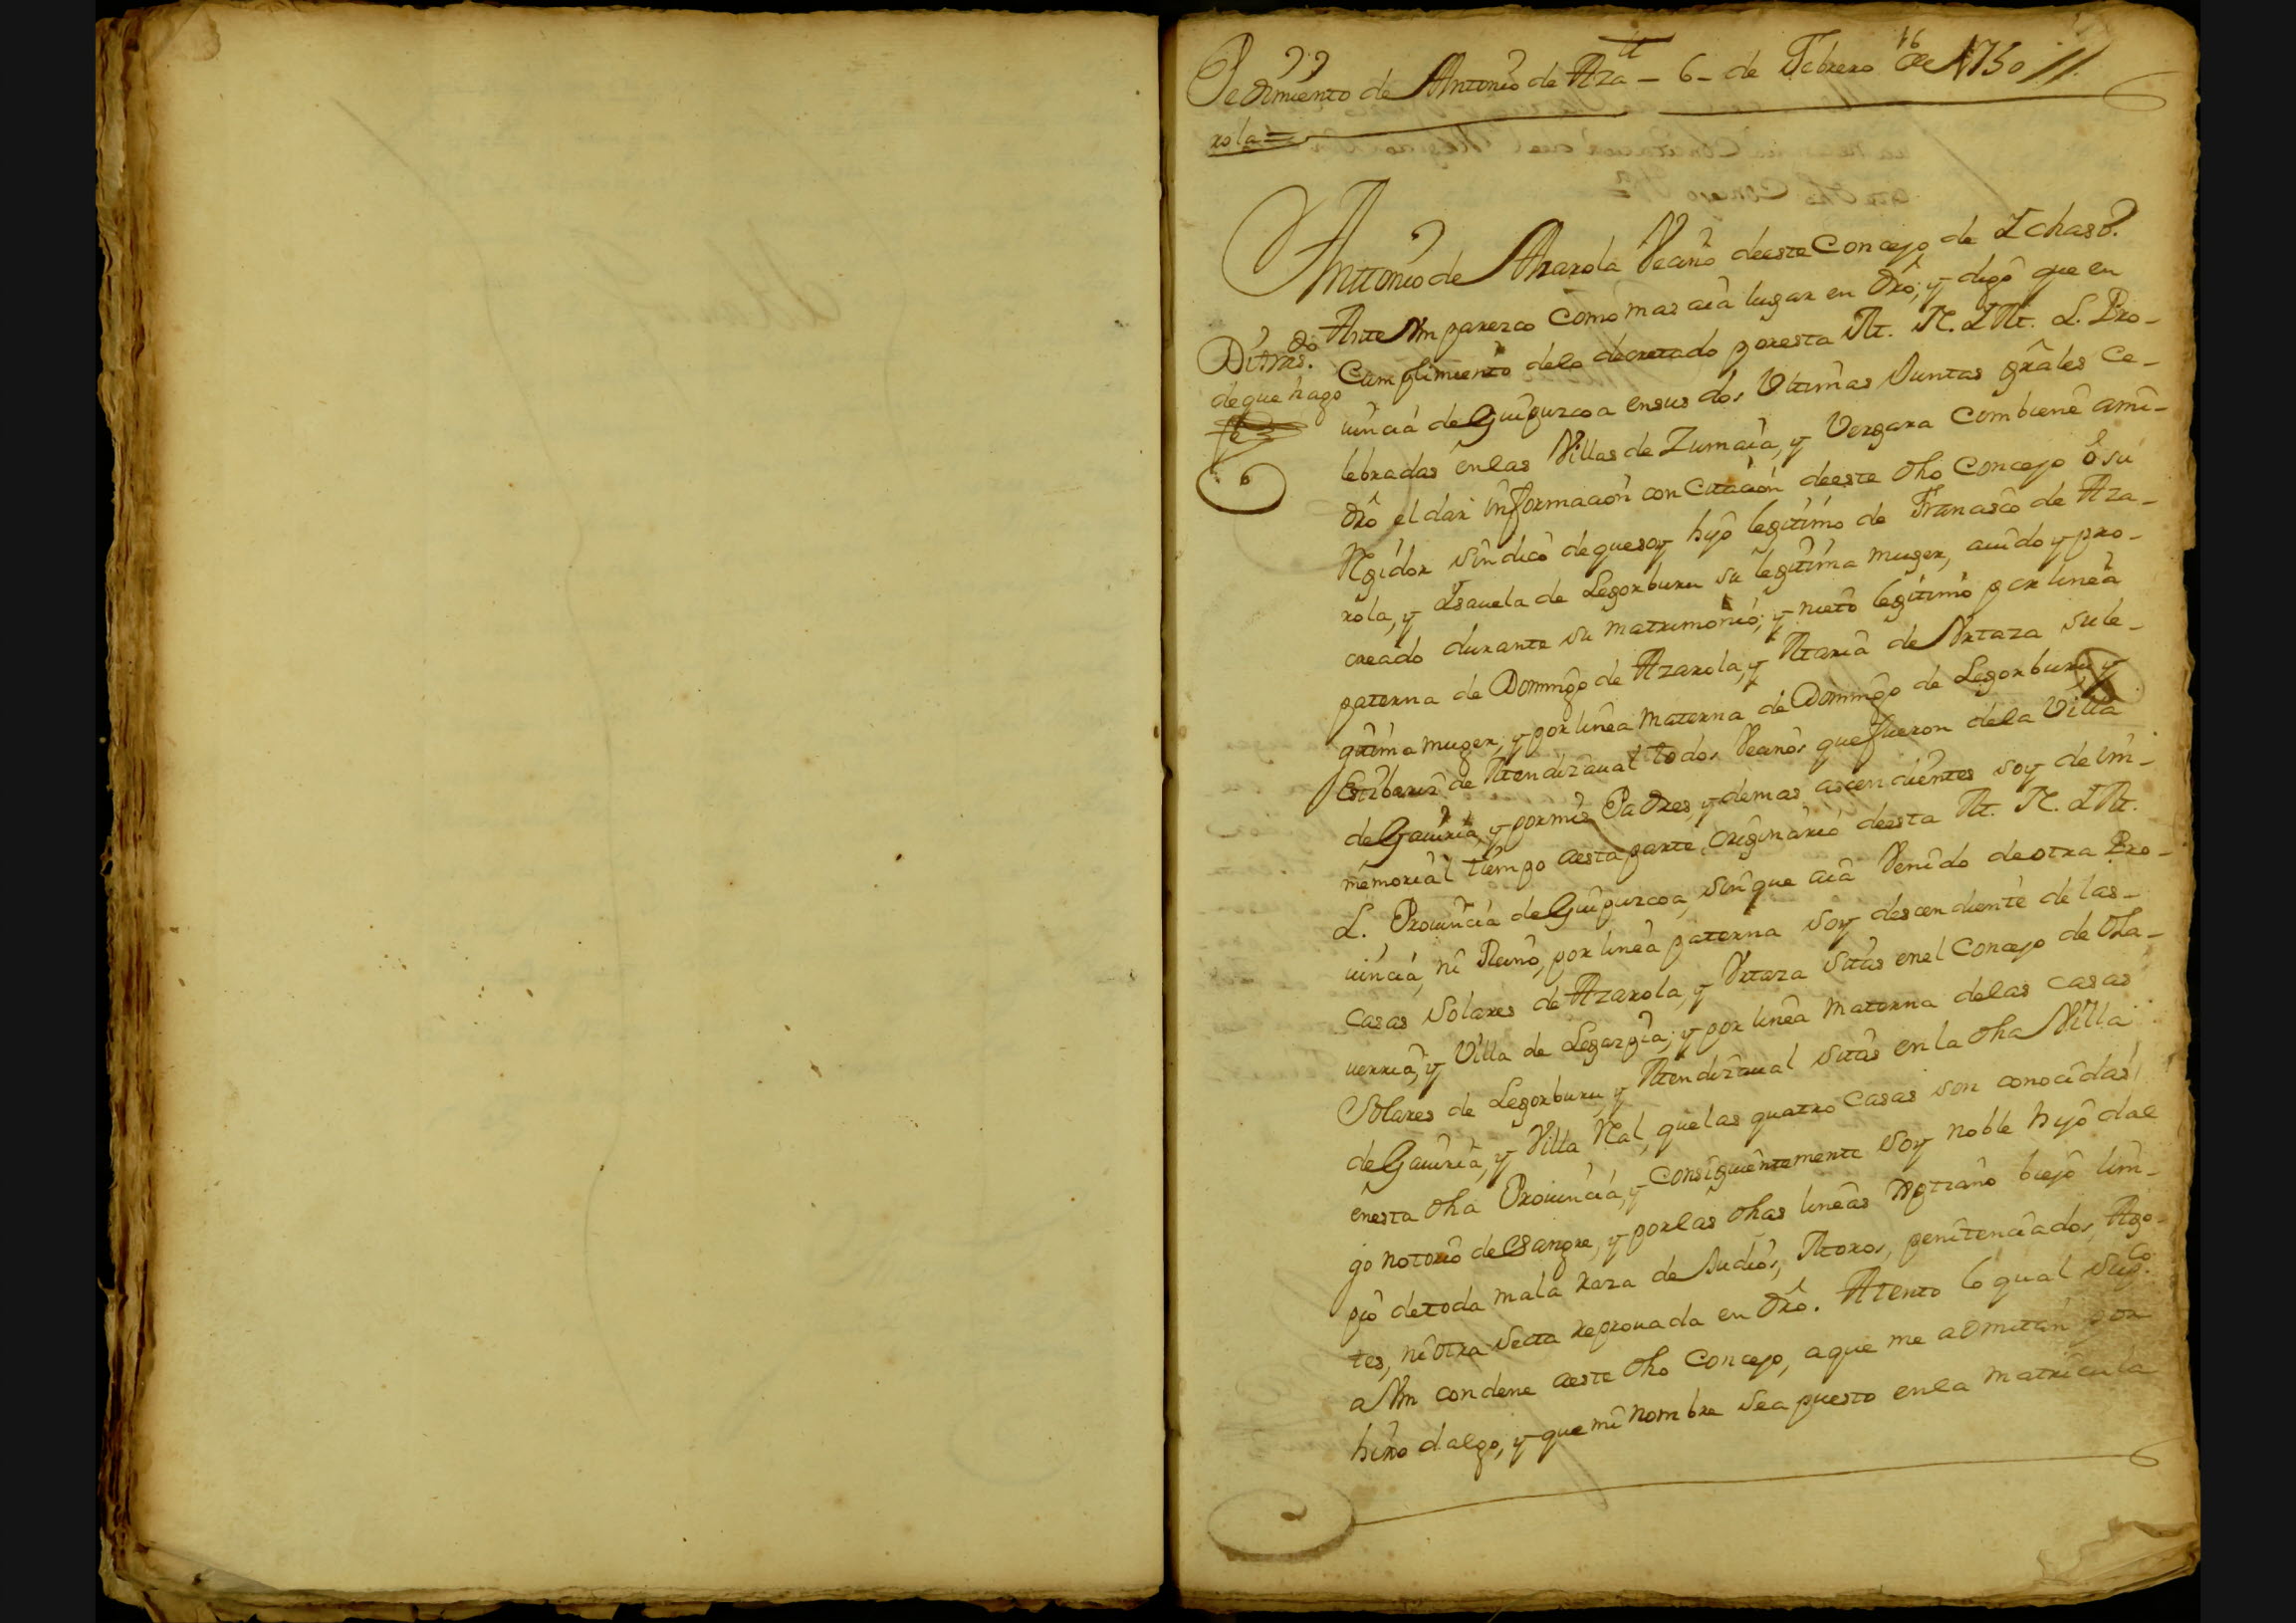 Pedimiento de Antonio de Aza - 6 - de Febrero de 1750 //
rola =
16
Antonio de Azarola Vecino deeste Concejo de Ichaso.
Ante Vm parezco como mas aia lugar en dro, y digo que en
Cumplimiento delo decretado poresta M. N. I M. L. Pro-
uincia de Guipuzcoa ensus dos Vltimas Juntas grales ce-
lebradas enlas Villas de Zumaia, y Vergara combiene ami-
dro el dar informacion con citacion deeste dho Concejo ô su
Rexidor sindico dequesoy hijo legitimo de Francisco de Aza-
rola, y Isauela de Legorburu su legitima muger, auido y pro-
creado durante su matrimonio; y nieto legitimo por linea
paterna de Domingo de Azarola, y Maria de Vrtaza sule-
gitima muger, y por linea materna de Domingo de Legorburu y
de Mendizaual todos Vecinos quefueron dela Villa
de Gauiria, y pormis Padres, y demas ascendientes soy de im-
memorial tiempo aesta parte originario deesta M. N. I M.
L. Prouincia de Guipuzcoa, sinque aia Venido deotra Pro-
uincia, ni Reino, por linea paterna soy descendiente de las-
casas Solares de Azarola, y Vrtaza sitas enel Concejo de Ola-
uerria, y Villa de Legazpia; y por linea materna delas casas
Solares de Legorburu, y Mendizaual sitas en la dha Villa
de Gauiria, y Villa Ral, quelas quatro casas son conocidas
enesta dha Prouincia, y consiguientemente soy noble hijo dal
go notorio de Sangre, y porlas dhas lineas xptiano biejo lim-
pio detoda mala raza de Judios, Moros, penitenciados, Ago-
tes, ni otra secta reprouada en dro. Atento lo qual supco
a Vm condene aeste dho Concejo, aque me admitan por
hixo dalgo, y que mi nombre sea puesto enla matricula
de que hago